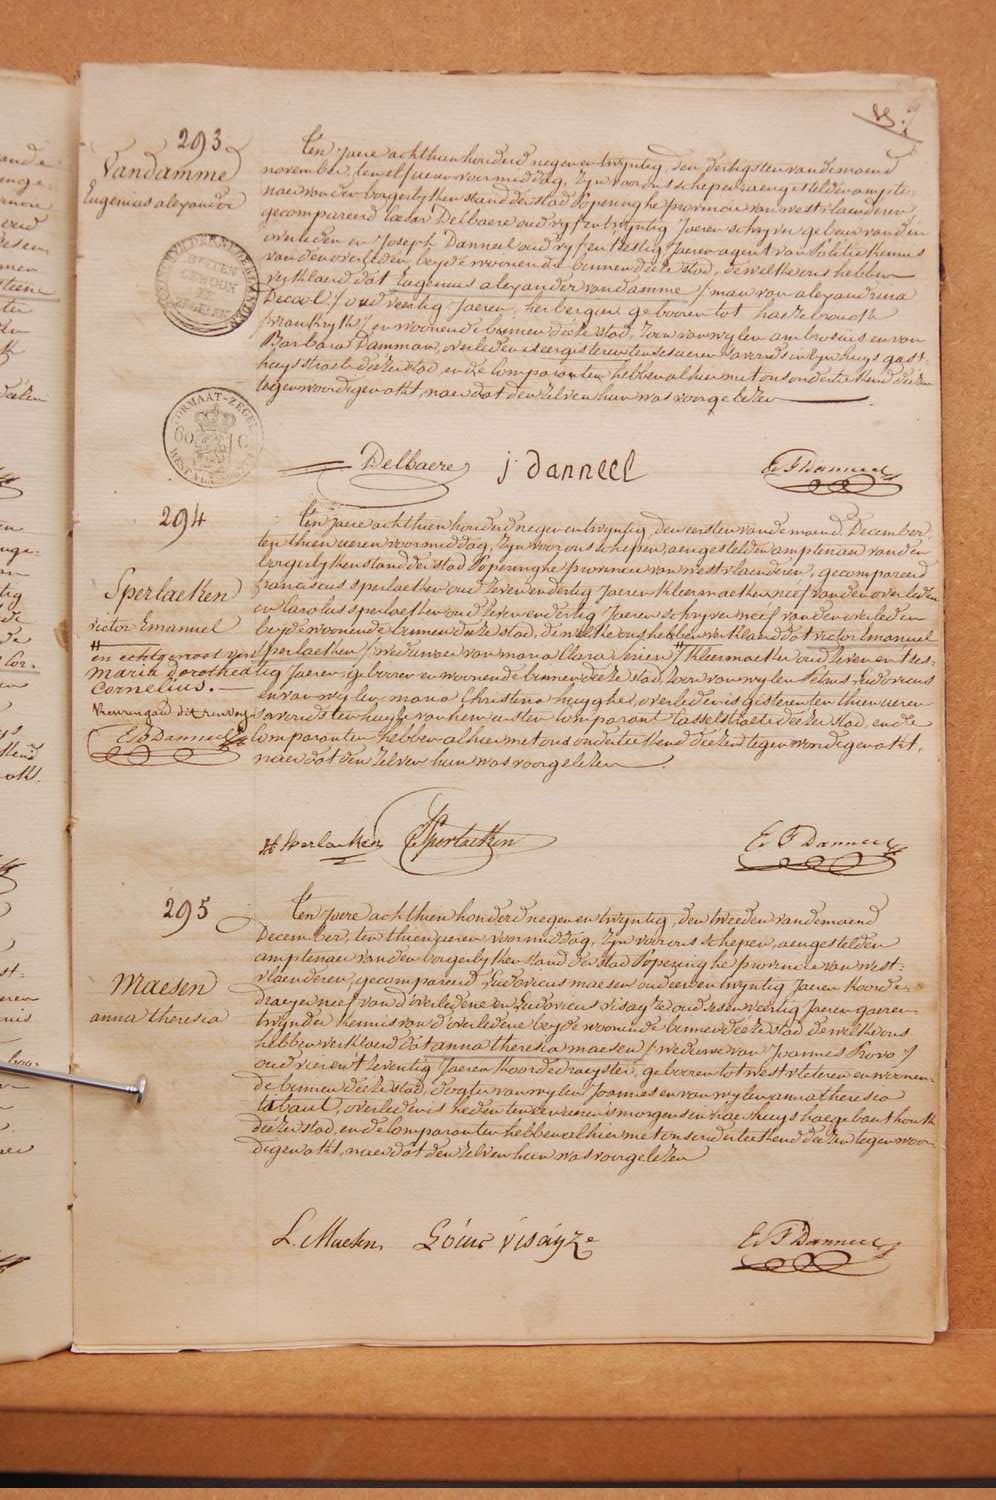 293
Vandamme
Eugenius alexander
Ten Jaere achthien honderd negen en twyntig, den dertigsten van de maend
november, ten elf ueren voormiddag, zyn voor ons schepen aengestelden ampte-
naer van den borgerlyken stand der stad Poperinghe provincie van westvlaenderen,
gecompareerd Delbaere oud vyf en twyntig Jaeren schryver gebuer van den
overleden en Joseph Danneel oud vyf en Jaeren agent van Politie kennis
van den overleden beyde woonende binnen deeze stad, dewelke ons hebben
verklaerd dat Eugenius alexander vandamme / man van alexandrina
Decool / oud veertig Jaeren, herbergier geboren tot haezebrouck
/ vrankryk / en woonende binnen deeze stad, zoon van wylen ambrosius en van
Barbara Damman, overleden is eergisteren ten ueren s'avonds in zyn huys gast-
huysstraete deezer stad, en de Comparanten hebben alhier met ons onderteekend deezen
tegenwoordigen akt, naer dat den zelven hun was voorgelezen
FORMAAT-ZEGEL
60 C
Delbaere j: danneel E P Danneel
294
Sperlaeken
victor Emanuel
en echtgenoot van
maria Dorothea
Cornelius.
E P Danneel
Ten Jaere achthien honderd negen en twyntig, den eersten van de maend December,
ten thien ueren voormiddag, zyn voor ons schepen, aengestelden amptenaer van den
borgerlyken stand der stad Poperinghe provincie van westvlaenderen, gecompareerd
franciscus sperlaeken oud zeven en dertig Jaeren kleermaeker neef van den overleden
en Carolus sperlaeken oud zeven en dertig Jaeren schryver neef van den overleden
beyde woonende binnen deeze stad, dewelke ons hebben verklaerd dat victor Emanuel
sperlaeken / weduwer van maria Clara / kleermaeker oud zeven en tses-
tig Jaeren, geboren en woonende binnen deeze stad, zoon van wylen Petrus Ludovicus
en van wylen maria Christina huyghe, overleden is gisteren ten thien ueren
s'avonds ten huyze van hem eersten Comparant Casselstraete deezer stad, en de
Comparanten hebben alhier met ons onderteekend deezen tegenwoordigen akt,
naer dat den zelven hun was voorgelezen
Sperlaeken Sperlaeken E P Danneel
295
Maesen
anna theresia
Ten Jaere achthien honderd negen en twyntig, den tweeden van de maend
December, ten thien ueren voormiddag, zyn voor ons schepen, aengestelden
amptenaer van den borgerlyken stand der stad Poperinghe provincie van west-
vlaenderen, gecompareerd Ludovicus maesen oud een en twyntig Jaeren koorde-
draeyer neef van d'overledene en Ludovicus visayze oud ses en veertig Jaeren gaeren-
twynder kennis van d'overledene beyde woonende binnen deeze stad dewelke ons
hebben verklaerd dat anna theresia maesen / weduwe van Joannes Provo /
oud vier en t'zeventig Jaeren koordedraeyster, geboren tot westvleteren en woonen-
de binnen deeze stad, dogter van wylen Joannes en van wylen anna theresia
tabaut, overleden is heden ten ueren s'morgens in haer huys
deezer stad, en de Comparanten hebben alhier met ons onderteekend deezen tegenwoor-
digen akt, naer dat den zelven hun was voorgelezen
L. Maesen Lovis visayze E P Danneel